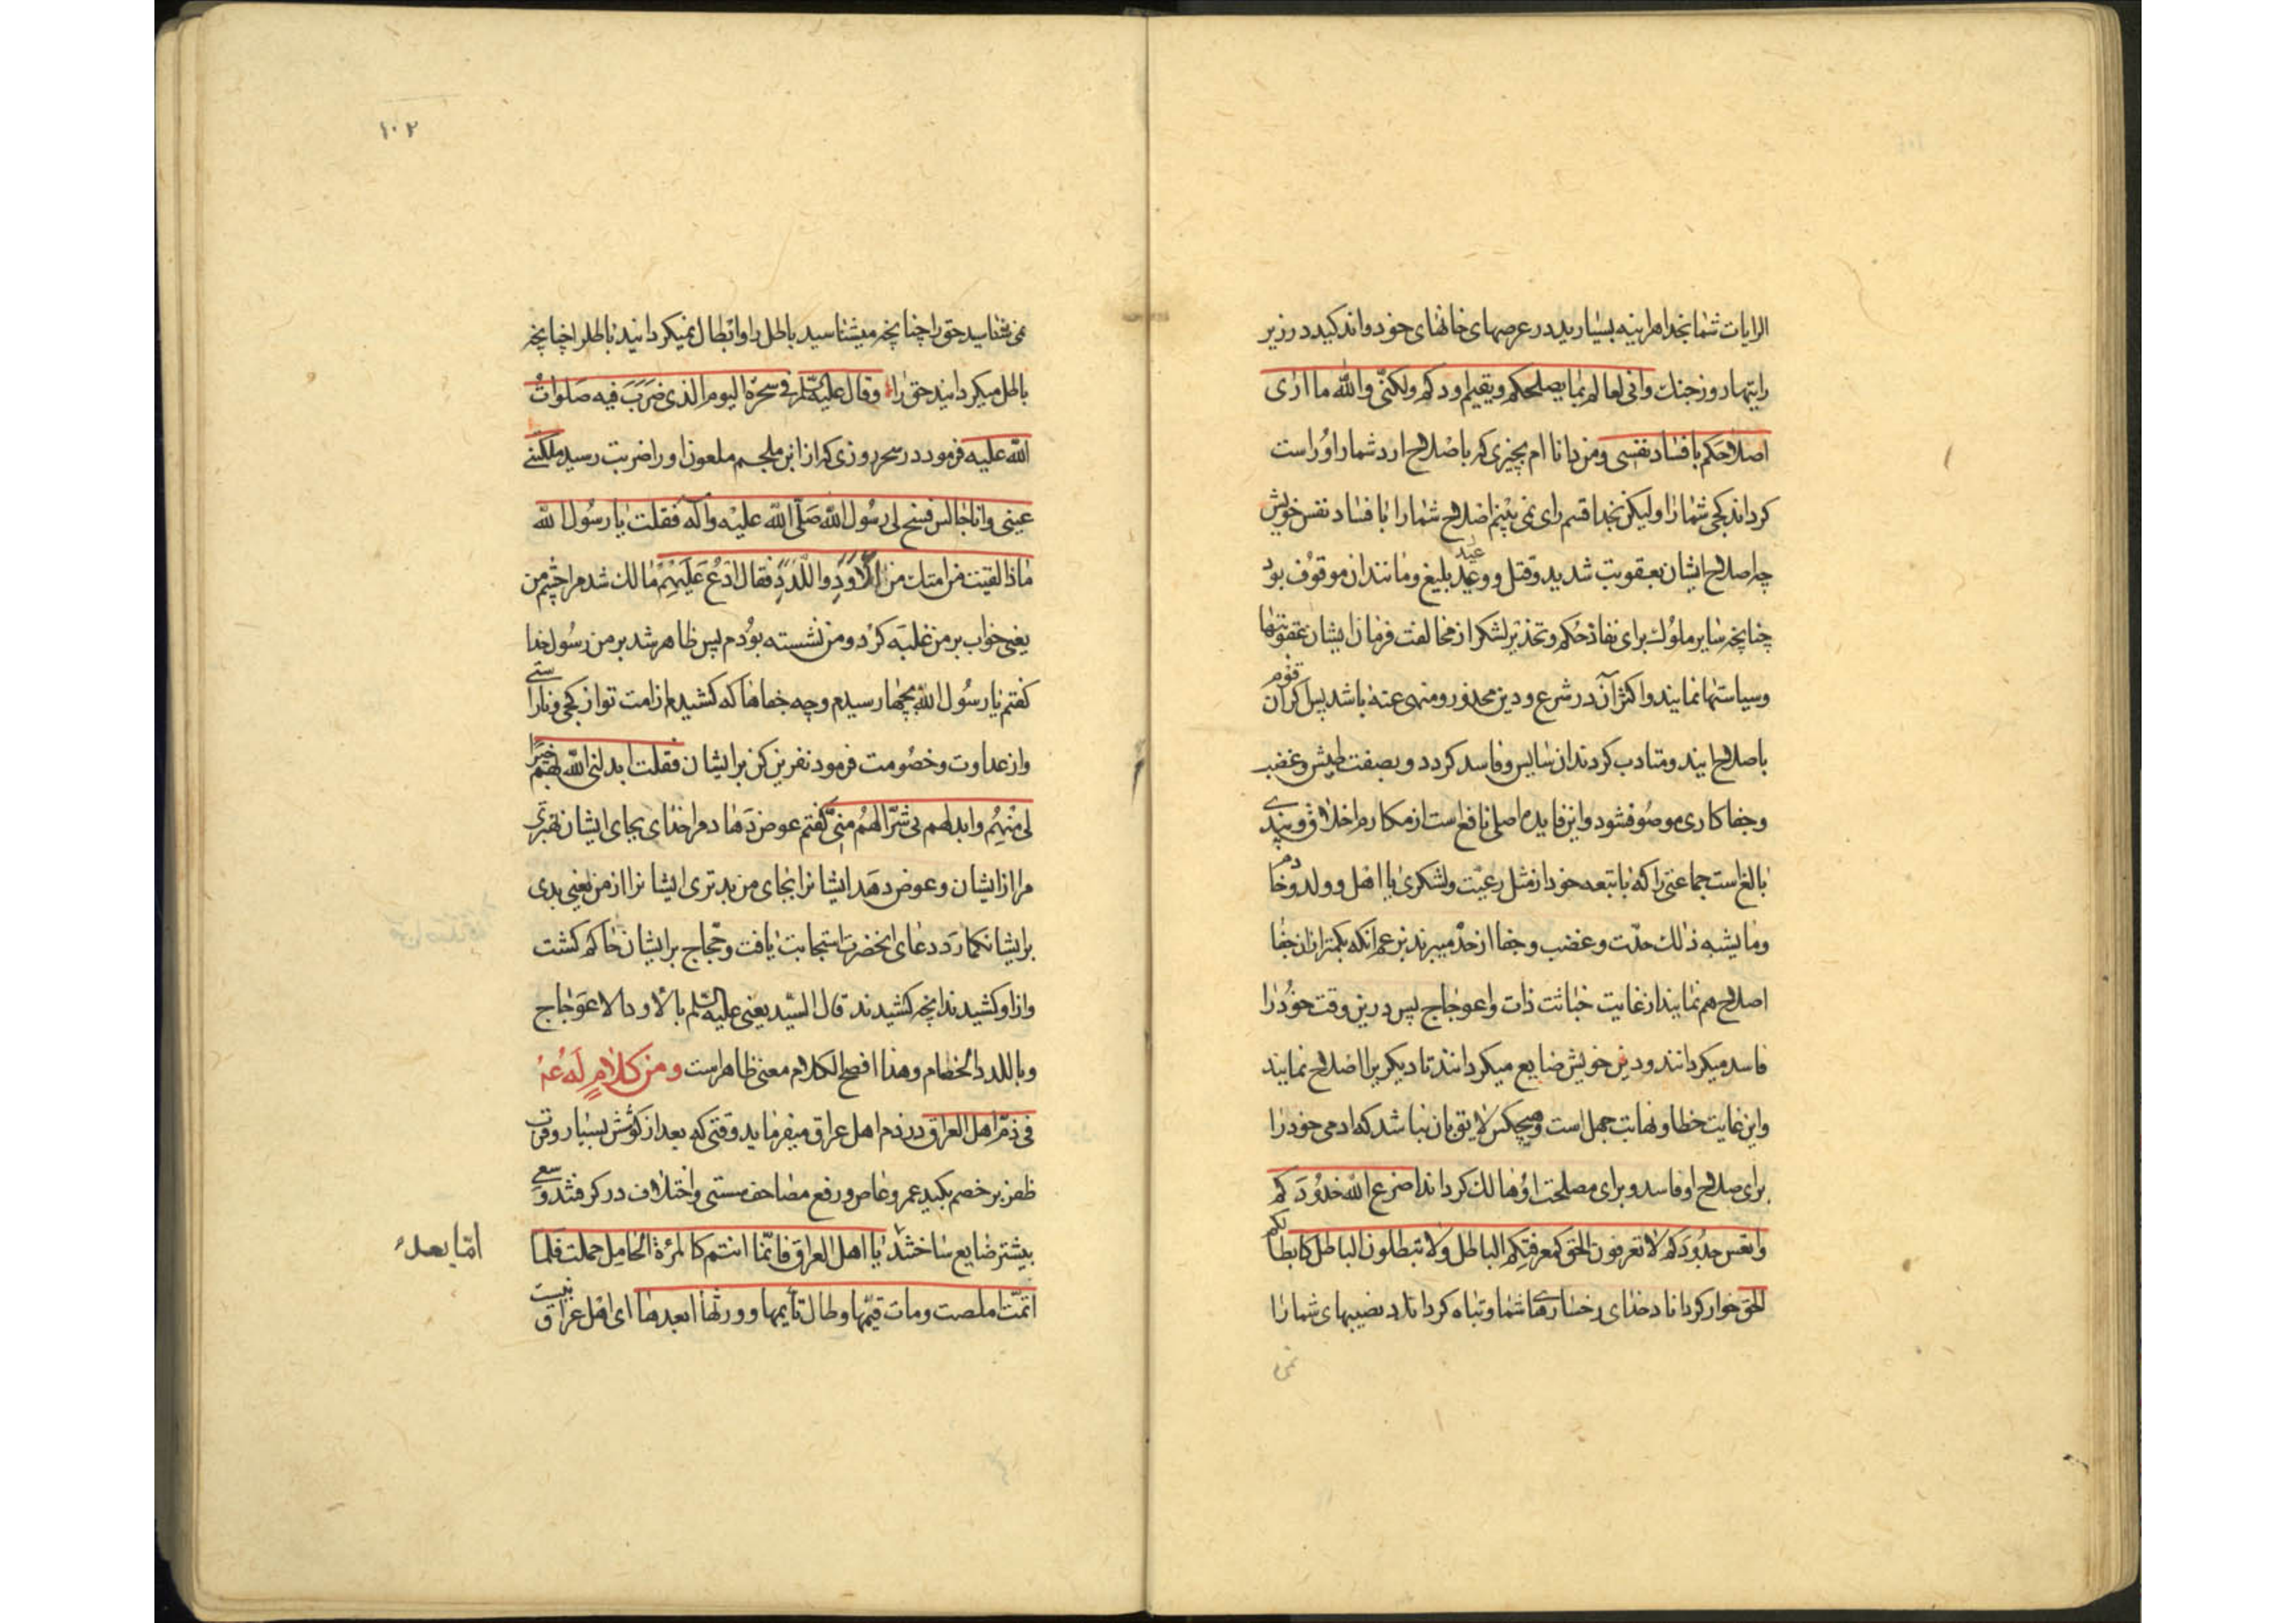 الرایات شما بخدا هراینه بسیارید در عرصهای خانهای خود و اندکید در زیر
رایتها روز جنك وانی لعالم بما یصلحکم ویقیم اودکم ولکنّی والله ما اری
اصلاحکم بافساد نفسی و من دانا ام بچیزی که باصلاح ارد شما را و راست
کرداند کجی شما را ولیکن بخدا قسم رای نمی بینم اصلاح شما را بافساد نفس خویش
چه اصلاح ایشان بعقوبت شدید و قتل و وعید بلیغ و مانند ان موقوف بود
چنانچه سایر ملوك برای نفاذ حکم و تحذیر لشکر از مخالفت فرمان ایشان عقوبتها
و سیاستها نمایند و اکثر آن در شرع و دین محذور و منهی عنه باشد پس اکر ان قوم
باصلاح ایند و متادب کردند ان سایس فاسد کردد و بصفت طیش و غضب
و جفاکاری موصوف شود و این فایده اصلی نافع است از مکارم اخلاق و پندی
بالغ است جماعتی را که با تبعه خود از مثل رعیّت و لشکری یا اهل و ولد و خادم
وما یشبه ذلك حدّت و غضب و جفا از حدّ میبرند بزعم انکه بکمتر از ان جفا
اصلاح هم نمایند از غایت خباثت ذات و اعوجاج پس درین وقت خود را
فاسد میکردانند و دین خویش ضایع میکردانند تا دیکریرا اصلاح نمایند
و این غایت خطا و نهایت جهل است و هیچکس لایق بان نباشد که ادمی خود را
برای صلاح او فاسد و برای مصلحت او هالك کرداند اضرع الله خدودکم
واتعس جدودکم لا تعرفون الحق کمعرفتکم الباطل ولا تبطلون الباطل کابطالکم
الحق خوار کرداناد خدای رخسارهای شما و تباه کرداناد نصیبهای شما را
نمی
۱۰۲
نمی شناسید حق را چنانچه میشناسید باطل را و ابطال نمیکردانید باطل را چنانچه
باطل میکردانید حق را وقال علیه السّلم فی سحرة الیوم الذی ضرب فیه صلوات
الله علیه فرمود در سحر روزی که از ابن ملجم ملعون او را ضربت رسید ملکتنی
عینی وانا جالس فسنح لی رسول الله صلّی الله علیه وآله فقلت یا رسول الله
ماذا لقیت من امتك من الاود واللدد فقال ادع علیهم مالك شد مرا چشم من
یعنی خواب بر من غلبه کرد و من نشسته بودم پس ظاهر شد بر من رسول خدا
کفتم یا رسول الله بچها رسیدم و چه جفاها که کشیدم از امت تو از کجی و ناراستی
و از عداوت و خصومت فرمود نفرین کن بر ایشان فقلت ابدلنی الله بهم خیرا
لی منهم وابدلهم بی شرّا لهم منّی کفتم عوض دهاد مرا خدای بجای ایشان بهتری
مرا از ایشان و عوض دهد ایشانرا بجای من بدتری ایشانرا از من یعنی بدی
بر ایشان کمارد دعای انحضرت استجابت یافت و حجّاج بر ایشان حاکم کشت
و از او کشیدند انچه کشیدند قال السیّد یعنی علیه السّلم بالاود الاعوجاج
وباللدد الخصام وهذا افصح الکلام معنی ظاهر است ومن کلامٍ له عم
فی ذمّ اهل العراق در ذم اهل عراق میفرماید وقتی که بعد از کوشش بسیار و قرب
ظفر بر خصم بکید عمرو عاص و رفع مصاحف سستی و اختلاف در کرفتند و سعی
پیشتر ضایع ساختند یا اهل العراق فانّما انتم کالمرءة الحامل حملت فلما
امّا بعد
اتمّت املصت ومات قیّمها وطال تأیمها وورثها ابعدها ای اهل عراق نیست